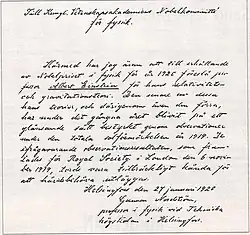 Till Kungl. Vetenskapsakademiens Nobelkommitté
för fysik.
Härmed har jag äran att till erhållande
av Nobelpriset i fysik för år 1920 föreslå pro-
fessor Albert Einstein för hans relativitets-
och gravitationsteori. Den senare av dessa
hans teorier, och därigenom även den förra,
har under det gångna året blivit på ett
glänsande sätt bestyrkt genom observationer
under den totala solförmörkelsen 1919. De
ifrågavarande observationsresultaten, som fram-
lades för Royal Society i London den 6 novem-
ber 1919, torde vara tillräckligt kända för
att närmare
Helsingfors den 27 januari 1920
Gunnar Nordström,
professor i fysik vid Tekniska
högskolan i Helsingfors.